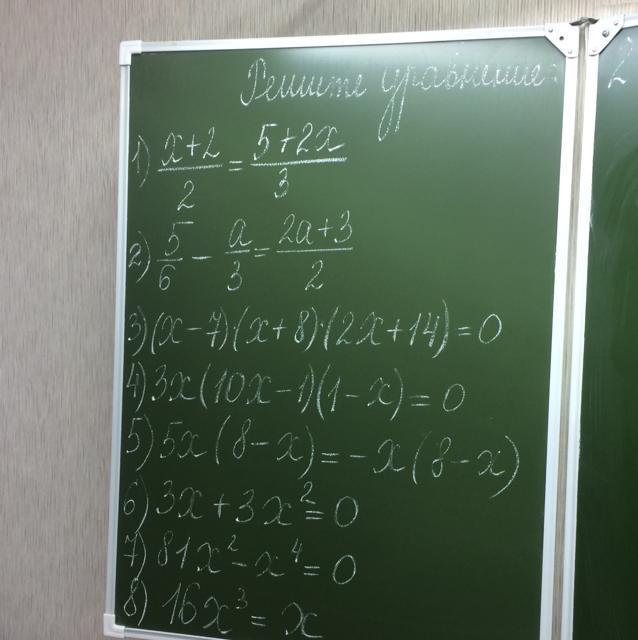 Решите уравнение:
1) x+2/2 = 5+2x/3
2) 5/6 - a/3 = 2a+3/2
3) (x-7)(x+8)·(2x+14)=0
4) 3x(10x-1)(1-x)=0
5) 5x(8-x)=-x(8-x)
6) 3x+3x²=0
7) 81x²-x⁴=0
8) 16x³=x
2